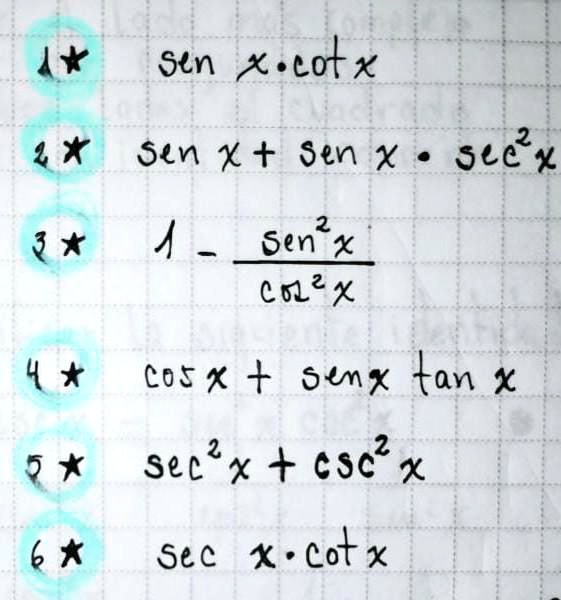 1★ sen x·cot x
2★ sen x + sen x · sec²x
3★ 1 - sen²x
cos²x
4★ cos x + senx tan x
5★ sec²x + csc²x
6★ sec x·cot x